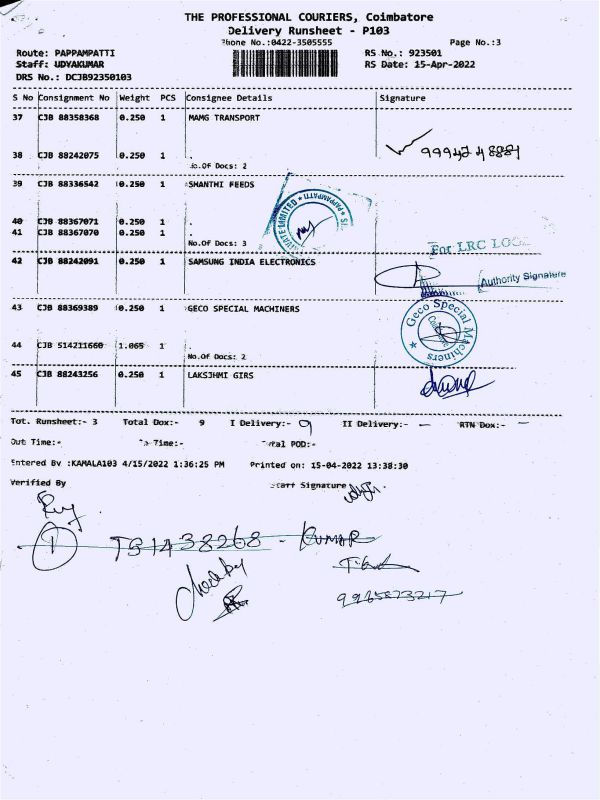 THE PROFESSIONAL COURIERS, Coimbatore
Delivery Runsheet - P103
Phone No.:0422-3505555
Page No.:3
Route: PAPPAMPATTI
RS No.: 923501
Staff: UDYAKUMAR
RS Date: 15-Apr-2022
DRS No.: DCJB92350103
S No Consignment No Weight PCS Consignee Details Signature
37 CJB 88358368 0.250 1 MAMG TRANSPORT
38 CJB 88242075 0.250 1 .
No.Of Docs: 2
39 CJB 88336542 0.250 1 SHANTHI FEEDS
40 CJB 88367071 0.250 1 .
41 CJB 88367070 0.250 1 .
No.Of Docs: 3
For LRC
42 CJB 88242091 0.250 1 SAMSUNG INDIA ELECTRONICS
Authority Signature
43 CJB 88369389 0.250 1 GECO SPECIAL MACHINERS
Geco Special Machiners
44 CJB 514211660 1.065 1 .
No.Of Docs: 2
45 CJB 88243256 0.250 1 LAKSJHMI GIRS
Tot. Runsheet:- 3 Total Dox:- 9 I Delivery:- 9 II Delivery:- — RTN Dox:- —
Out Time:- In Time:- Total POD:-
Entered By :KAMALA103 4/15/2022 1:36:25 PM Printed on: 15-04-2022 13:38:30
Verified By Staff Signature
① TB1438268 - KUMAR
9965873217